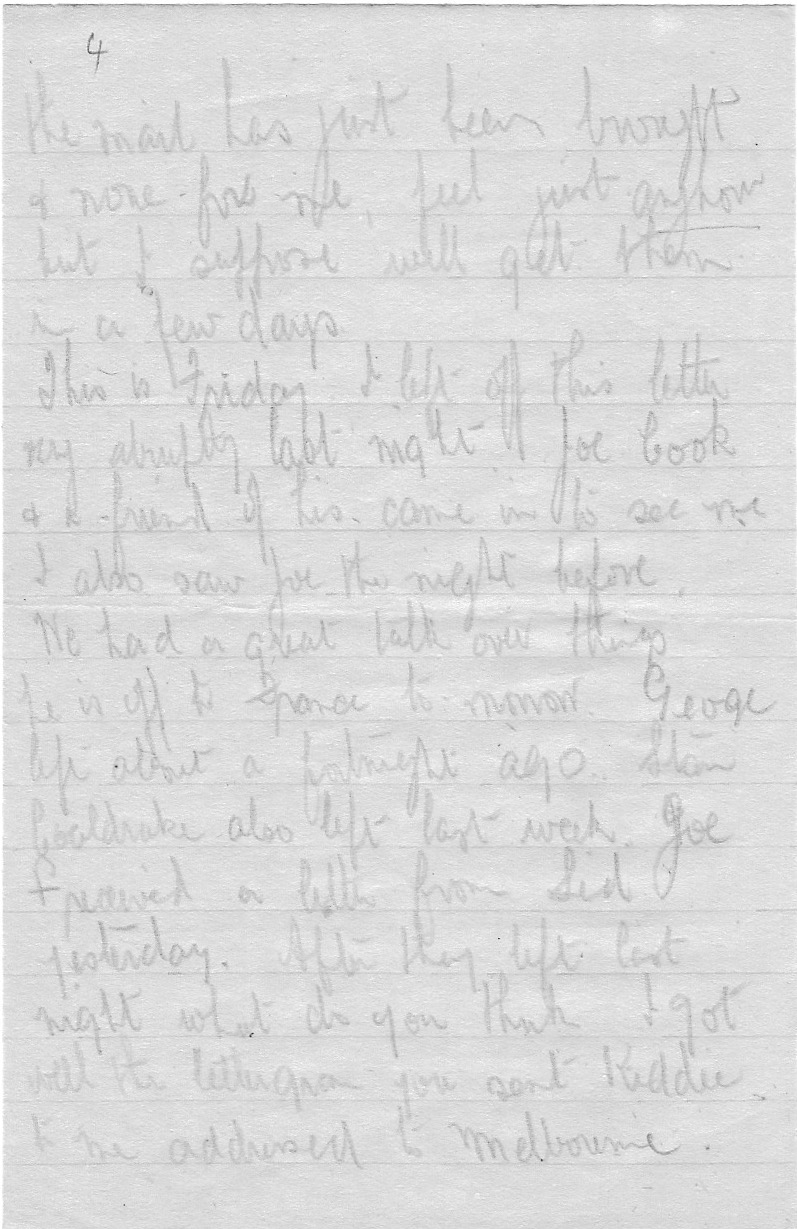 4
the mail has just been brought
& none for me, feel just anyhow
but I suppose will get them
in a few days.
This is Friday I left off this letter
very abruptly last night. Joe Cook
& a friend of his. came in to see me
I also saw Joe the night before.
We had a great talk over things
he is off to France to-morrow. George
left about a fortnight ago. Stan
Couldrake also left last week. Joe
received a letter from Sid
yesterday. After they left last
night what do you think I got
well the you sent Kiddie
to me addressed to Melbourne.